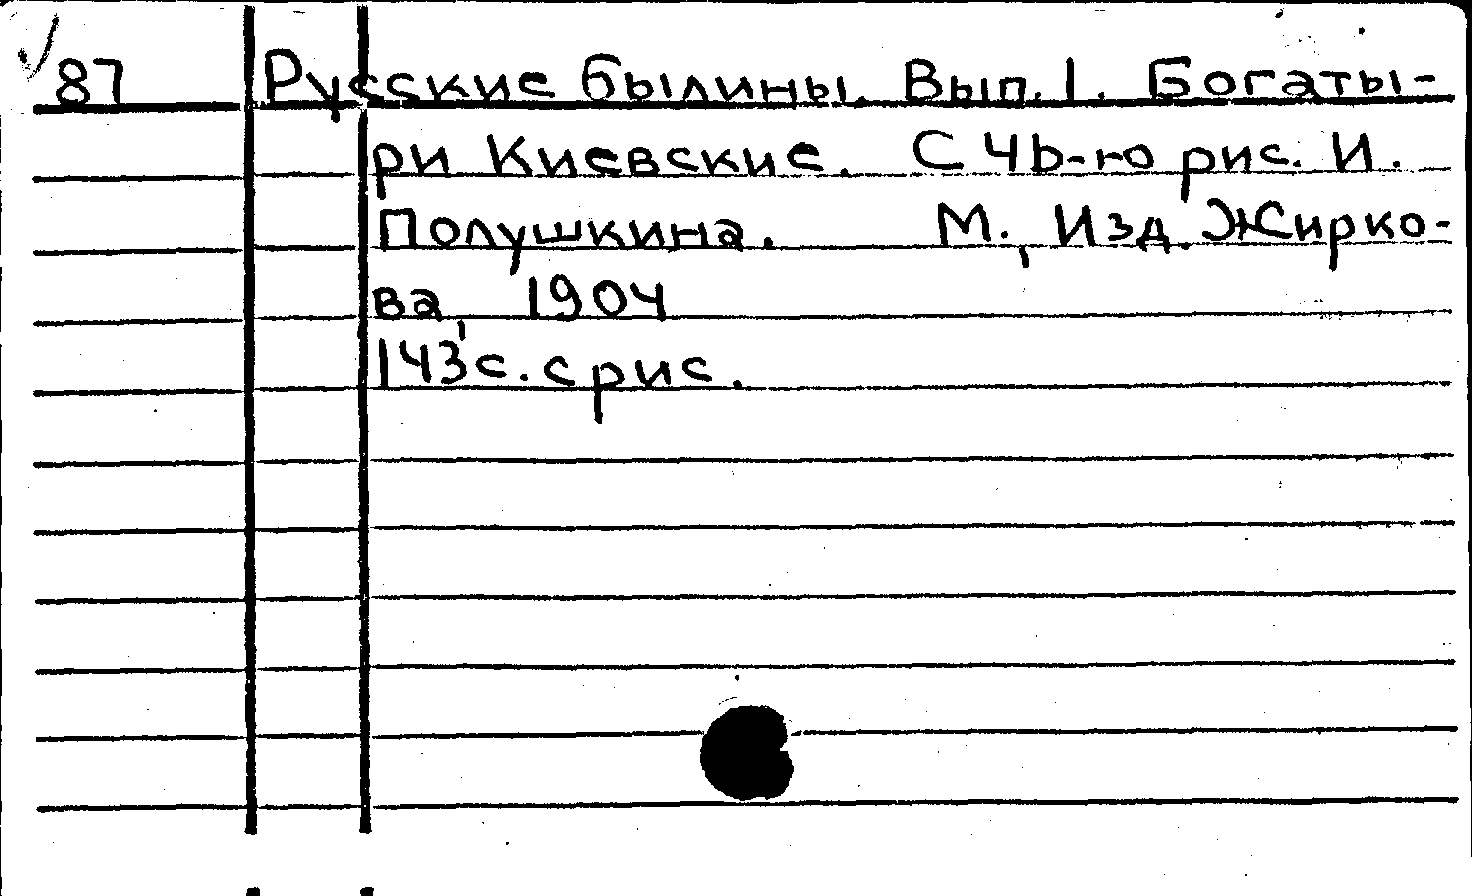 87 Русские былины. Вып. 1. Богаты-
ри Киевские. С 46-ю рис. И.
Полушкина. М., Изд. Жирко-
ва, 1904
143 с. с рис.